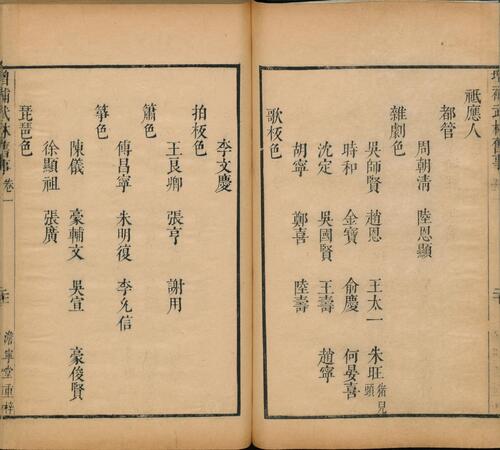 祗應人
都管
周朝清 陸恩顯
雜劇色
吳師賢 趙恩 王太一 朱旺猪兒頭
時和 金寶 俞慶 何晏喜
沈定 吳國賢 王壽 趙寧
胡寧 鄭喜 陸壽
歌板色
李文慶
拍板色
王良卿 張亨 謝用
簫色
傅昌寧 朱明復 李允信
箏色
陳儀 豪輔文 吳宣 豪俊賢
徐顯祖 張廣
琵琶色
增補武林舊事 卷一
澹寧堂重梓